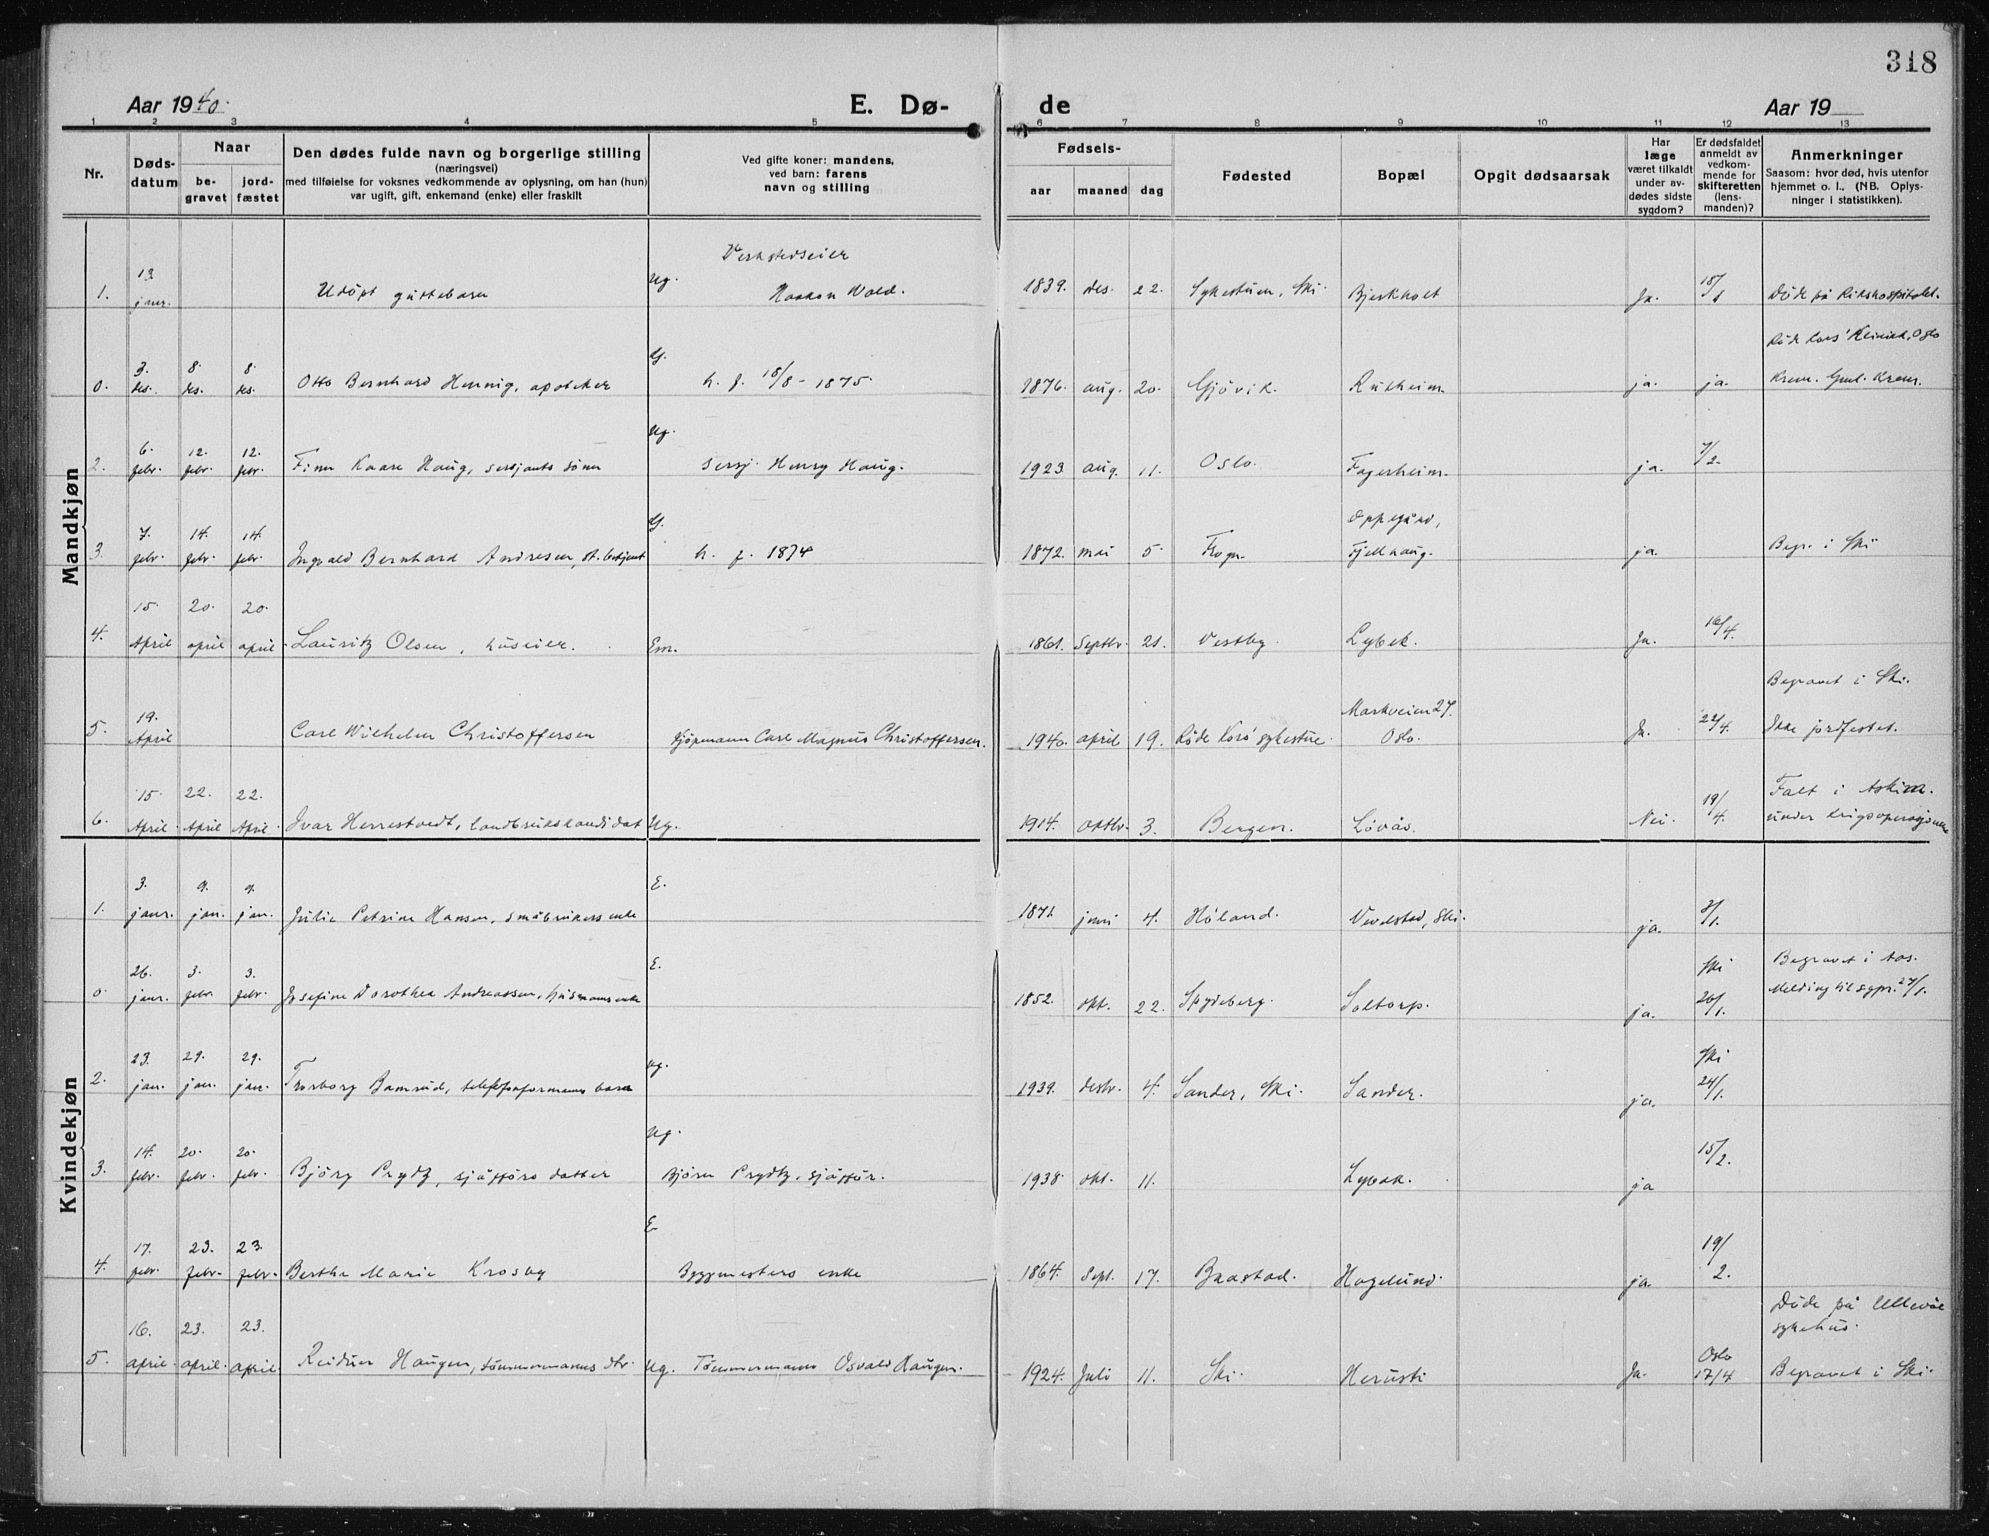 318
Aar 1940.
E. Dø-
de
Aar 19
1 2 3 4 5 6 7 8 9 10 11 12 13
Nr.
Døds-
datum
Naar
be-
gravet
jord-
fæstet
Den dødes fulde navn og borgerlige stilling
(næringsvei)
med tilføielse for voksnes vedkommende av oplysning, om han (hun)
var ugift, gift, enkemand (enke) eller fraskilt
Ved gifte koner: mandens,
ved barn: farens
navn og stilling
Fødsels-
aar maaned dag
Fødested
Bopæl
Opgit dødsaarsak
Har
læge
været tilkaldt
under av-
dødes sidste
sygdom?
Er dødsfaldet
anmeldt av
vedkom-
mende for
skifteretten
(lens-
manden)?
Anmerkninger
Saasom: hvor død, hvis utenfor
hjemmet o. l., (NB. Oplys-
ninger i statistikken).
Mandkjøn
Verkstedseier
1. 13 janr. Udöpt guttebarn Ug. Haakon Wold. 1839. des. 22. Sykestuen, Ski. Bjerkholt Ja. 18/1 Döde på Rikshospitalet.
Röde Kors' Klinikk, Oslo
0. 3. des. 8. des. 8. des. Otto Bernhard Hennig, apoteker G. h. f. 18/8 - 1875. 1876. aug. 20. Gjövik. Rutheim ja. ja. Krem. Gml. Krem.
2. 6. febr. 12. febr. 12. febr. Finn Kaare Haug, sersjants sönn Ug. Sersj. Henry Haug. 1923 aug. 11. Oslo. Fagerheim. ja. 7/2.
Oppegård,
3. 7. febr. 14. febr. 14. febr. Ingvald Bernhard Andresen, st. betjent G. h. f. 1874 1872. mai 5. Frogn. Fjellhaug. ja. Begr. i Ski
4. 15. April 20. april 20. april Lauritz Olsen, huseier. Em. 1861. Septbr. 21. Vestby. Lybek. Ja. 16/4.
Markveien 27. Begravet i Ski.
5. 19. April Carl Wilhelm Christoffersen Kjöpmann Carl Magnus Christoffersen. 1940. april 19. Röde Kors' sykestue. Oslo. Ja. 22/4. Ikke jordfestet.
Falt i Askim.
6. 15. April 22. April 22. April Ivar Herrestvedt, landbrukskandidat Ug. 1914. oktbr. 3. Bergen. Lövås. Nei. 19/4. under krigsoperasjonene
Kvindekjøn
1. 3. janr. 9. jan. 9. jan. Julie Petrine Hansen, småbrukers enke E. 1871 janr. 4. Höland. Vevelstad, Ski. ja. 8/1.
Ski Begravet i Aas.
0 26. janr. 3. febr. 3. febr. Josefine Dorothea Andreassen, husmanns enke E. 1852. okt. 22. Spydeberg. Saltorp. ja. 26/1. Melding til sgpr. 27/1.
Ski
2. 23. jan. 29. jan. 29. jan. Torborg Bamrud, telefonformanns barn Ug. 1939. desbr. 4. Sander, Ski. Sander. ja. 24/1.
3. 14. febr. 20. febr. 20. febr. Björg Prydz, sjåførs datter Ug. Björn Prydtz, sjåfør. 1938 okt. 11. Lybæk. ja 15/2.
4. 17. febr. 23. febr. 23. febr. Berthe Marie Krosby E. Byggmesters enke 1864. Sept. 17. Baastad. Hagelund. ja. 19/2.
Döde på Ullevål
sykehus.
Oslo
5. 16. april. 23. april. 23. april. Reidun Haugen, tömmermanns dtr. Ug. Tömmermann Osvald Haugen. 1924. Juli 11. Ski. Herusti Ja. 17/4 Begravet i Ski.